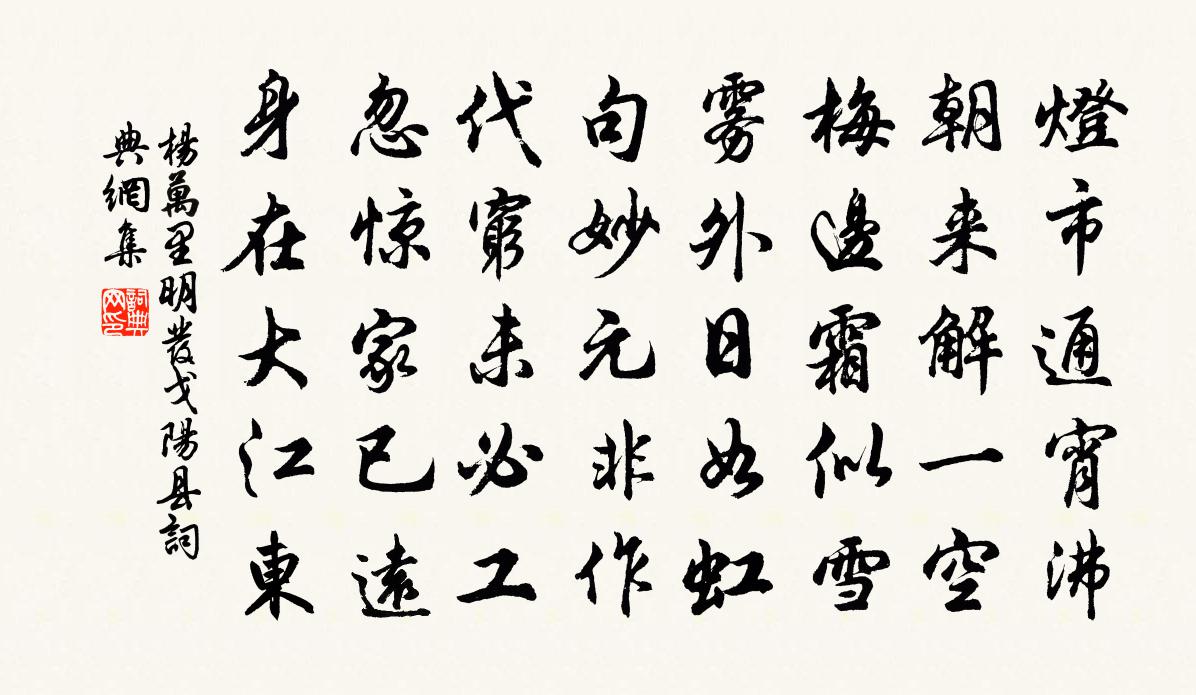 燈市通宵沸
朝来解一空
梅邊霜似雪
雾外日如虹
句妙元非作
代窮未必工
忽惊家已遠
身在大江東
楊萬里明發弋陽县詞
典網集
詞典
网印